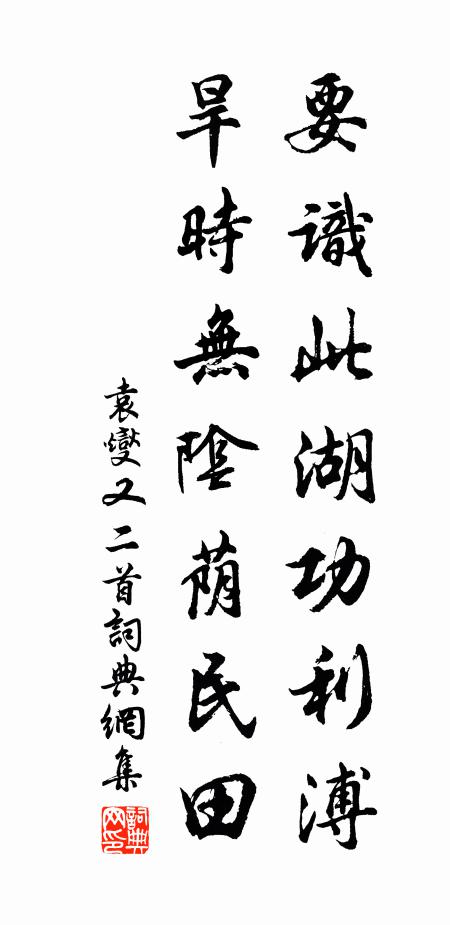 要識此湖功利溥
旱時無陰蔭民田
袁燮又二首詞典網集
詞典網印